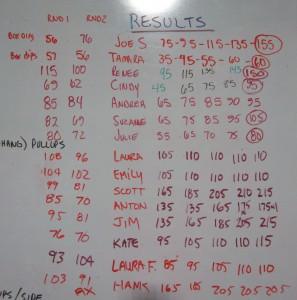 RND 1 RND2 RESULTS
Box dips 56 76 JOE S 75-95-115-135-155
Box dips 57 56 TAMARA 35-45-55-60-60
115 100 RENEE 95 115 135 145 150
69 62 CINDY 45 65 75 85 95
85 84 ANDREA 65 75 85 90 95
82 69 SUZANNE 65 75 85 95 105
80 72 JULIE 55 65 70 75 80
HANG) PULLUPS
108 96 LAURA 105 110 110 110 110
104 102 EMILY 105 110 110 110 110
99 81 SCOTT 165 185 205 210 215
85 70 ANTON 135 135 165 175 175+1
95 81 JIM 135 165 185 205 215
76 70 KATE 95 105 110 115 115
93 104 LAURA F. 85 95 105 110 110
103 91 HANS 165 185 205 205 205
UPS/SIDE RX